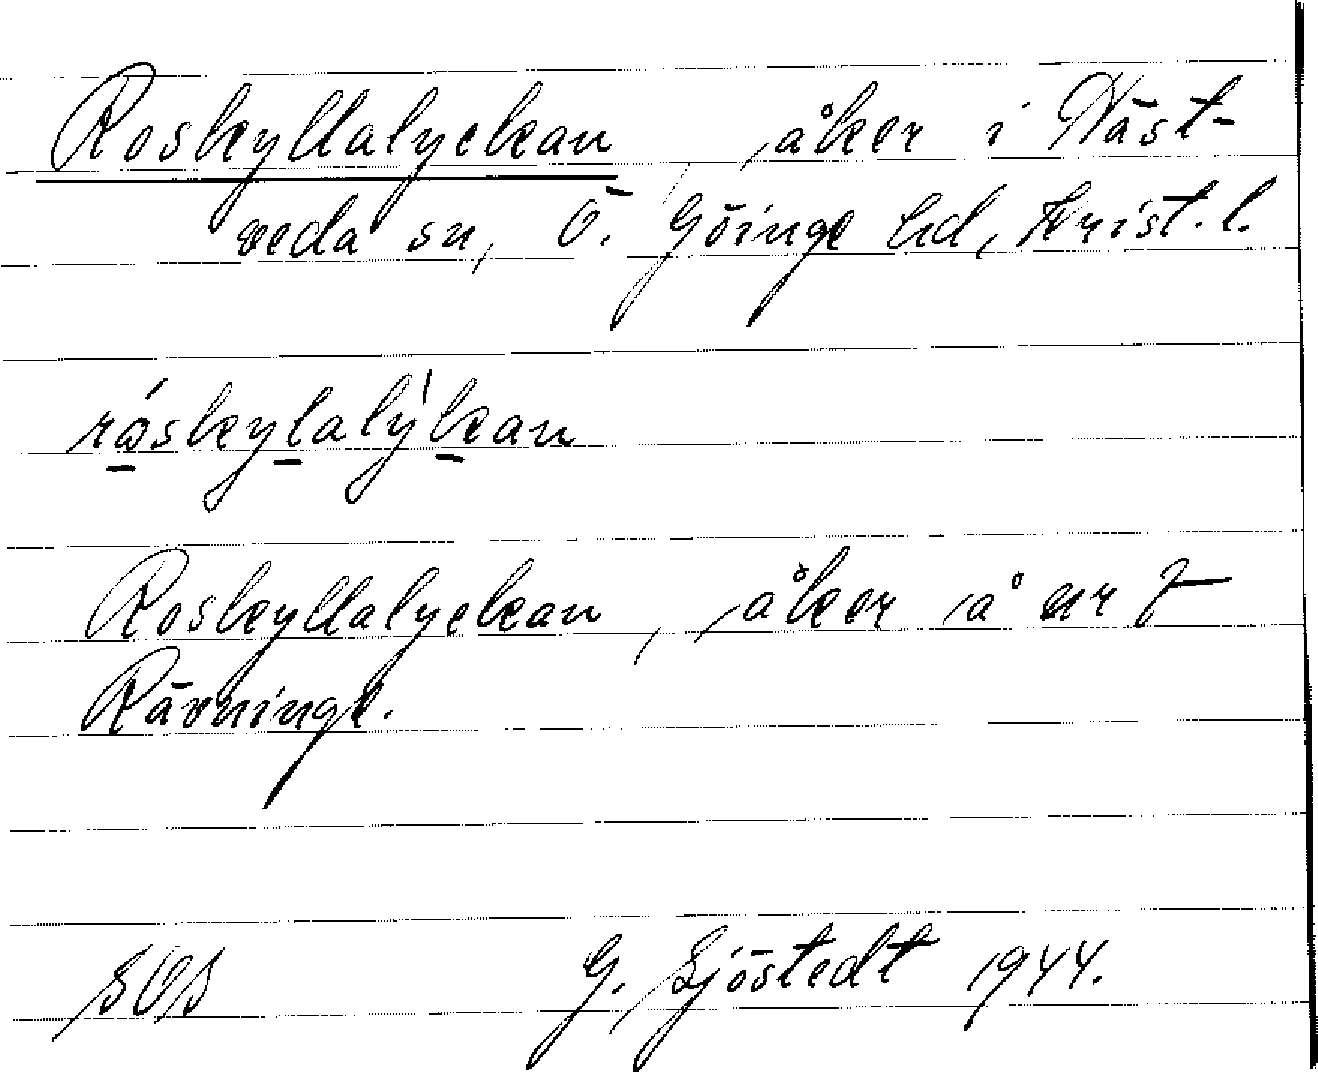 Roskyllalyckan, åker i Näst-
veda sn, Ö. Göinge hd, Krist. l.
råskylalýkan
Roskyllalyckan, åker å nr 7
Rävninge.
SOS G. Sjöstedt 1944.